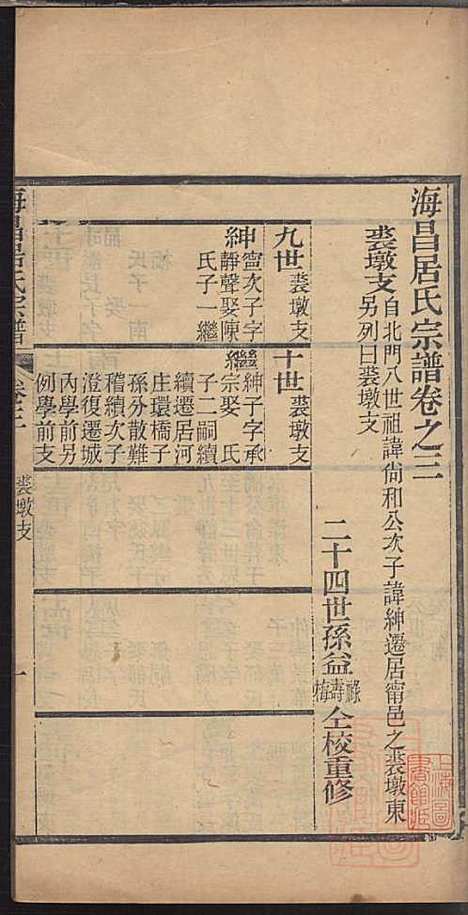 海昌居氏宗譜卷之三
裘墩支自北門八世祖諱尙和公次子諱紳遷居甯邑之裘墩東
另列曰裘墩支
二十四世孫益祿壽梅仝校重修
九世裘墩支
紳甯次子字
靜聲娶陳
氏子一繼
十世裘墩支
繼紳子字承
宗娶 氏
子二嗣續
續遷居河
庄環橋子
孫分散難
稽續次子
澄復遷城
內學前另
例學前支
海昌居氏宗譜
卷三
裘墩支
一
上海圖
書館藏